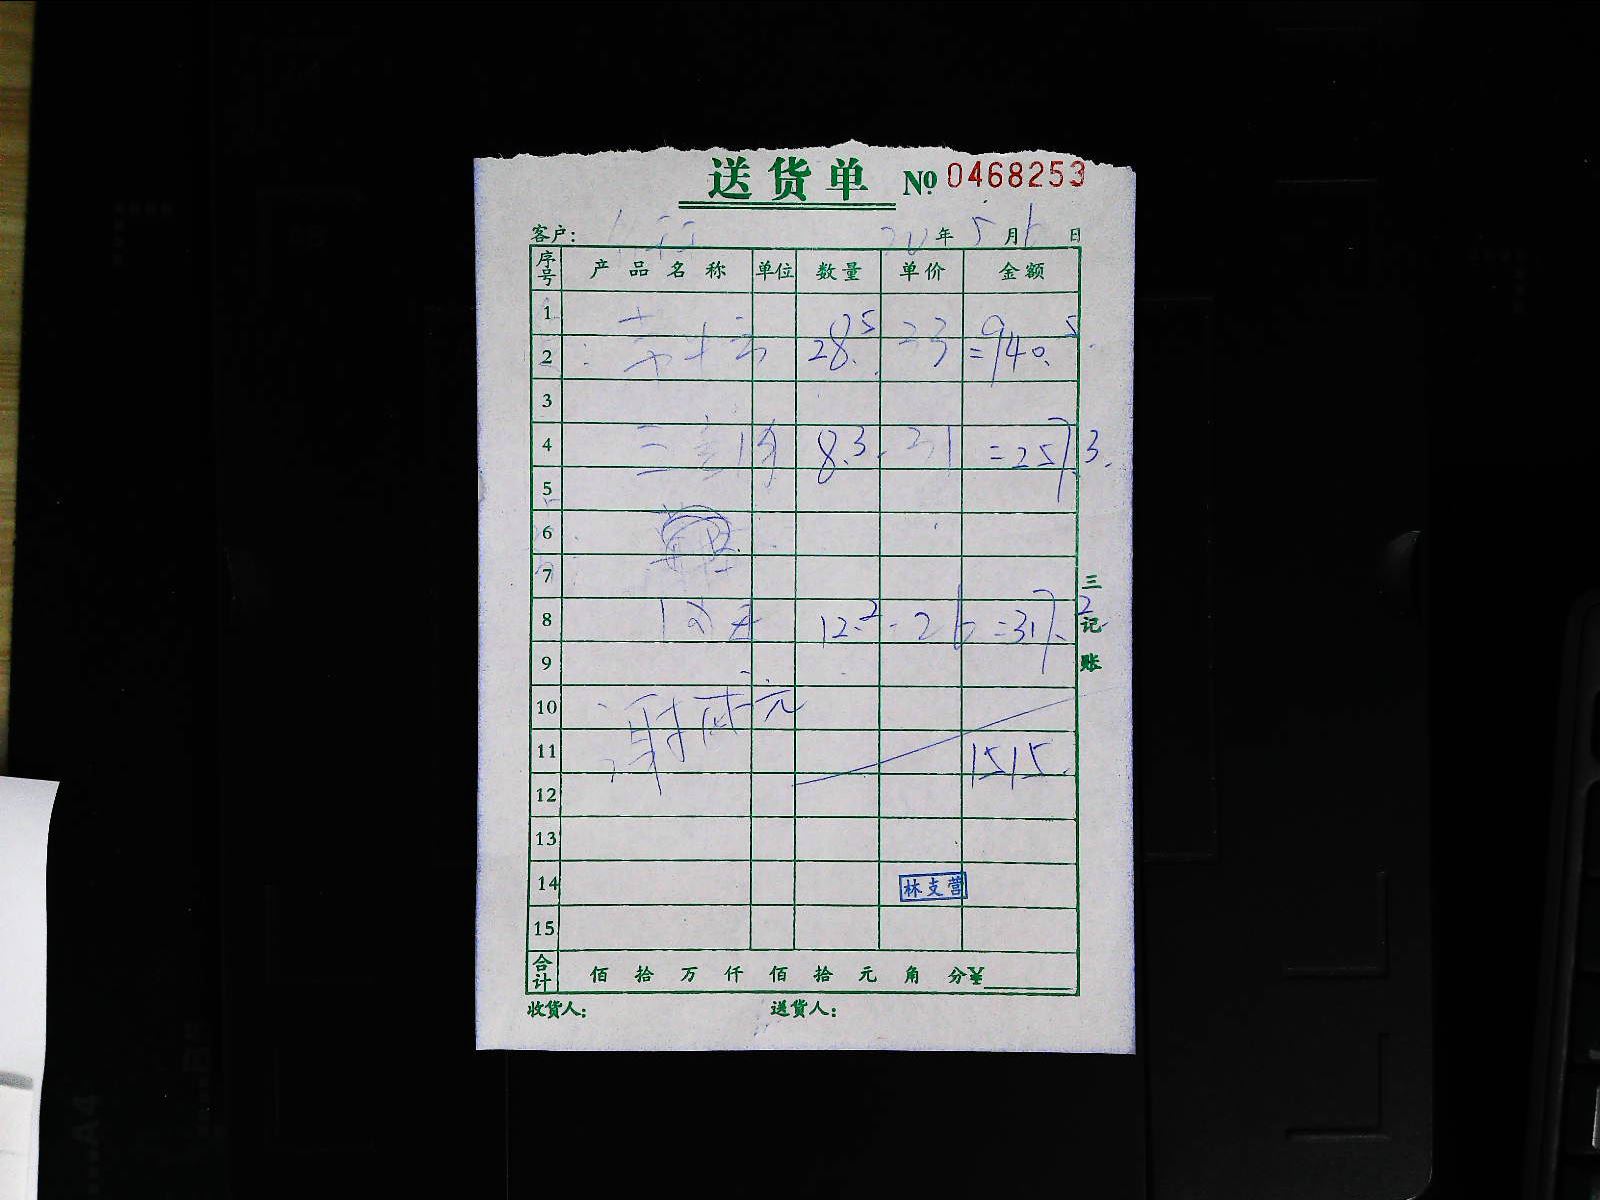 送货单 № 0468253
客户: 年 5 月 日
序号 产品名称 单位 数量 单价 金额
1
2 28.5 33 =940.5
3
4 8.3 31 =257.3
5
6
7
8 12.2 - 26 =317.2
9
10
11 1515.
12
13
14 林支营
15
合计 佰 拾 万 仟 佰 拾 元 角 分¥
收货人: 送货人:
三记账